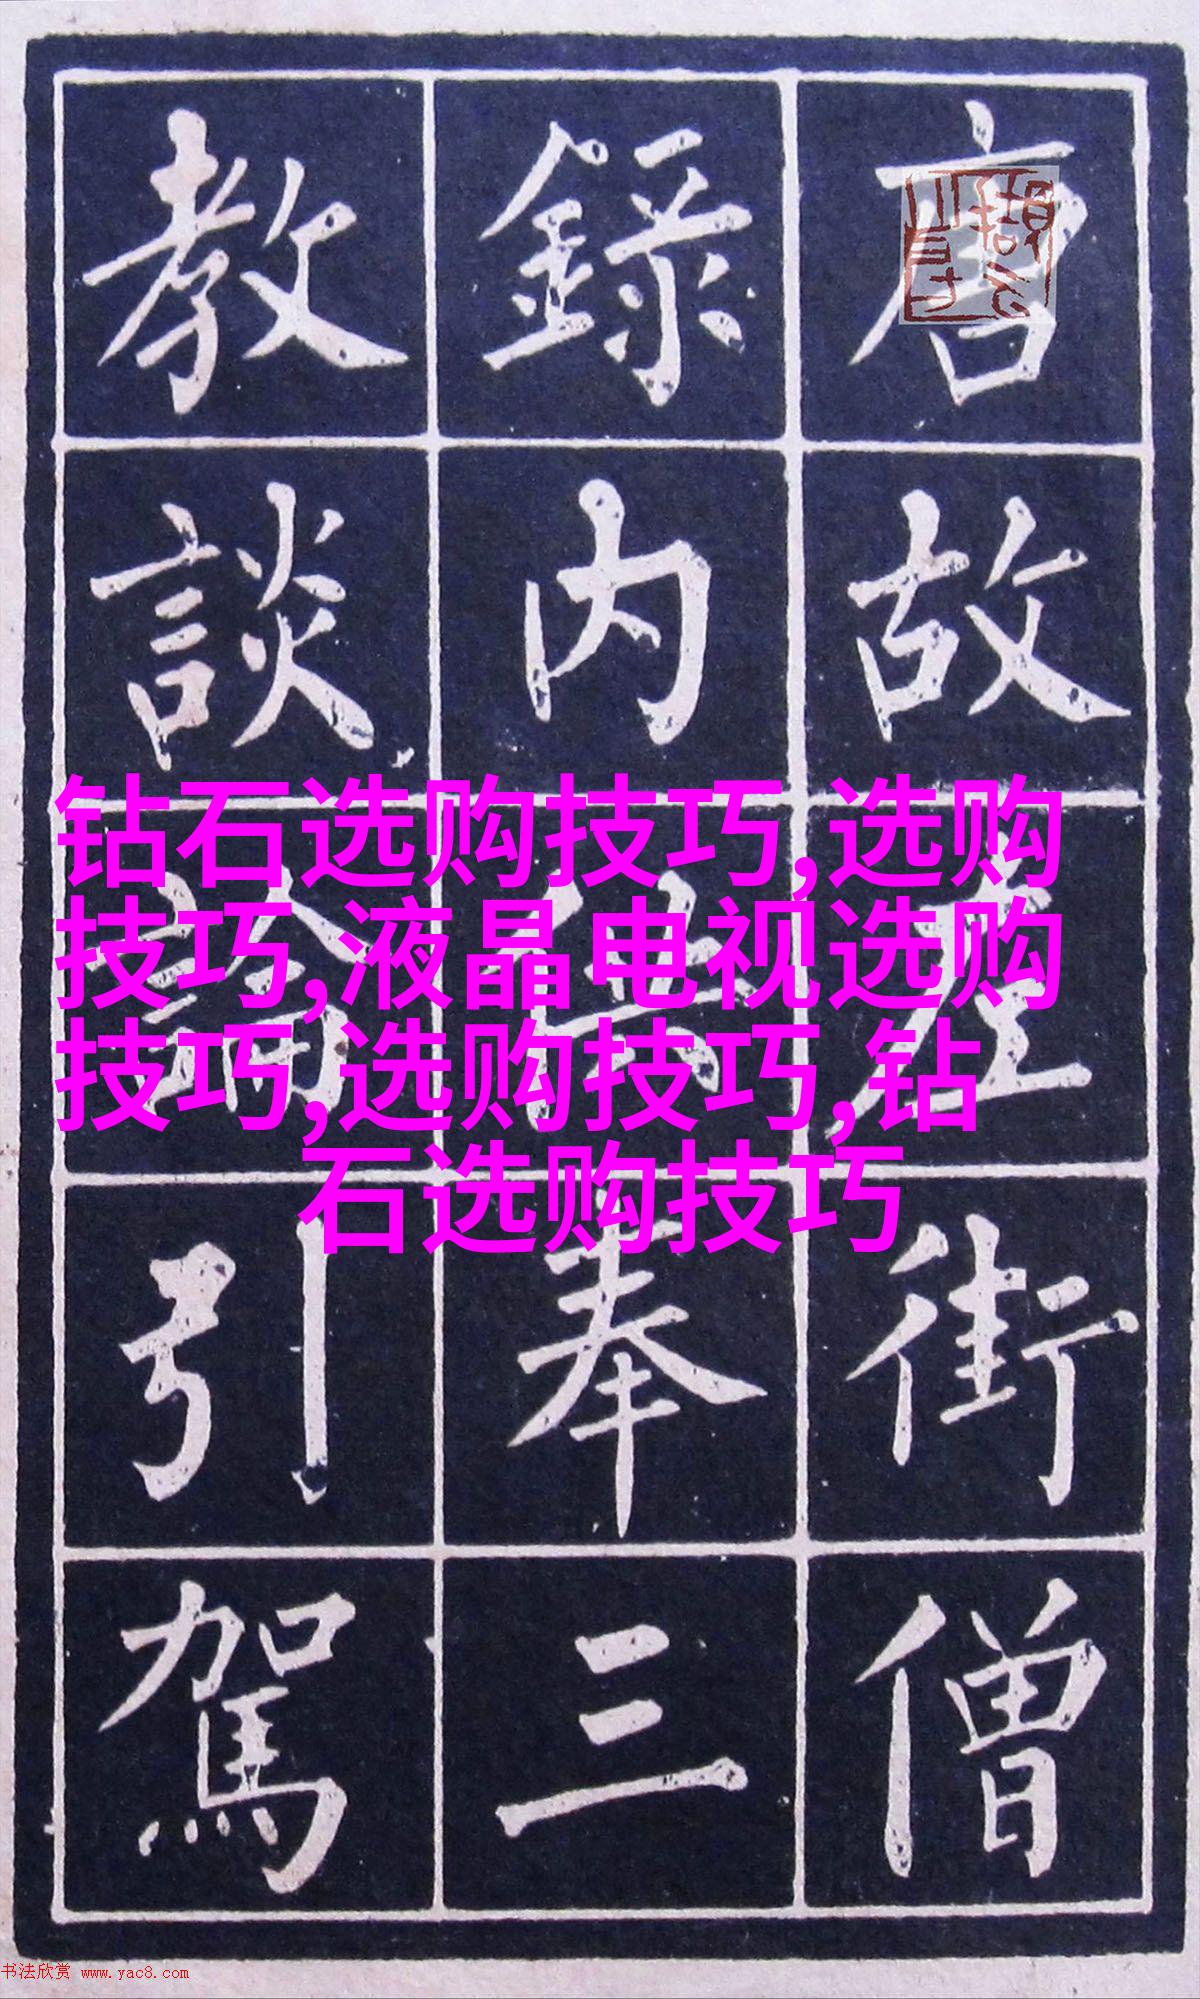 唐故左街僧
錄內供奉三
教談論引駕
钻石选购技巧,选购
技巧,液晶电视选购
技巧,选购技巧,钻
石选购技巧
书法欣赏 www.yac8.com